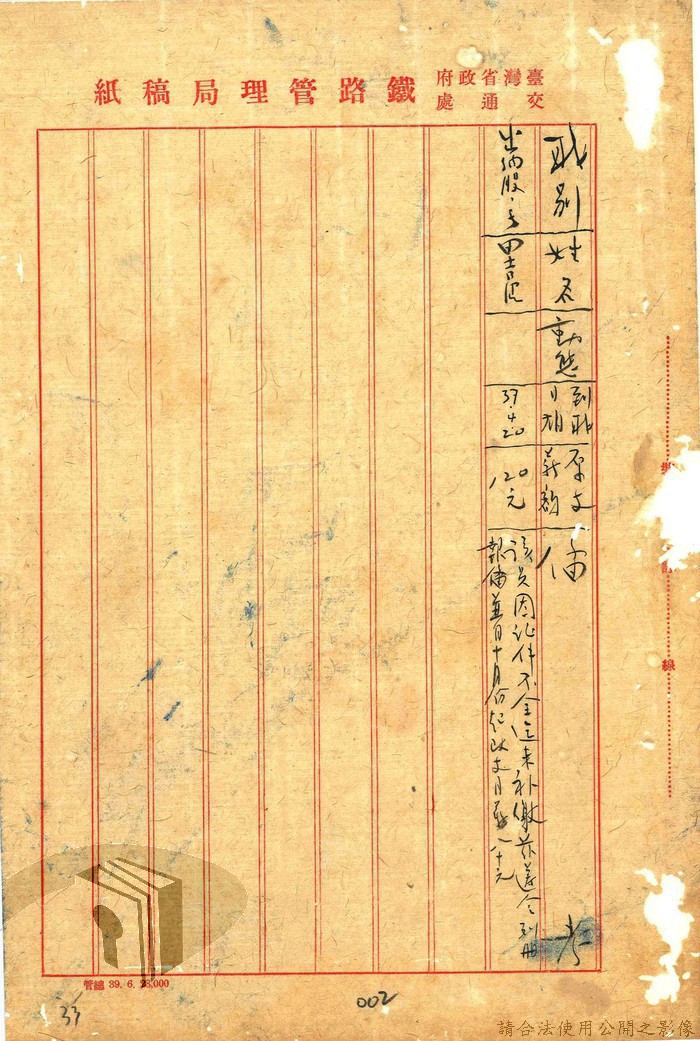 臺灣省政府
交通處
鐵路管理局稿紙
職別
姓名
動態
到職
日期
原支
薪額
備
考
出納股
田
39.4.20
120元
該員因証件不全迄未补繳茲遵令列冊
報備並自十月份起改支月薪八十元
線
管總 39. 6. 23.000
33
002
請合法使用公開之影像